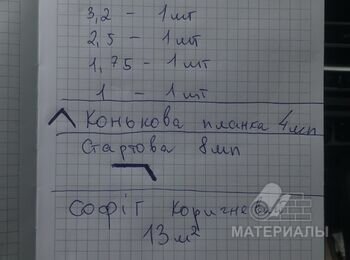 3,2 - 1 шт
2,5 - 1 шт
1,75 - 1 шт
1 - 1 шт
Конькова планка 4 мп
Стартова 8 мп
Софіт коричне
13 м²
МАТЕРИАЛЫ